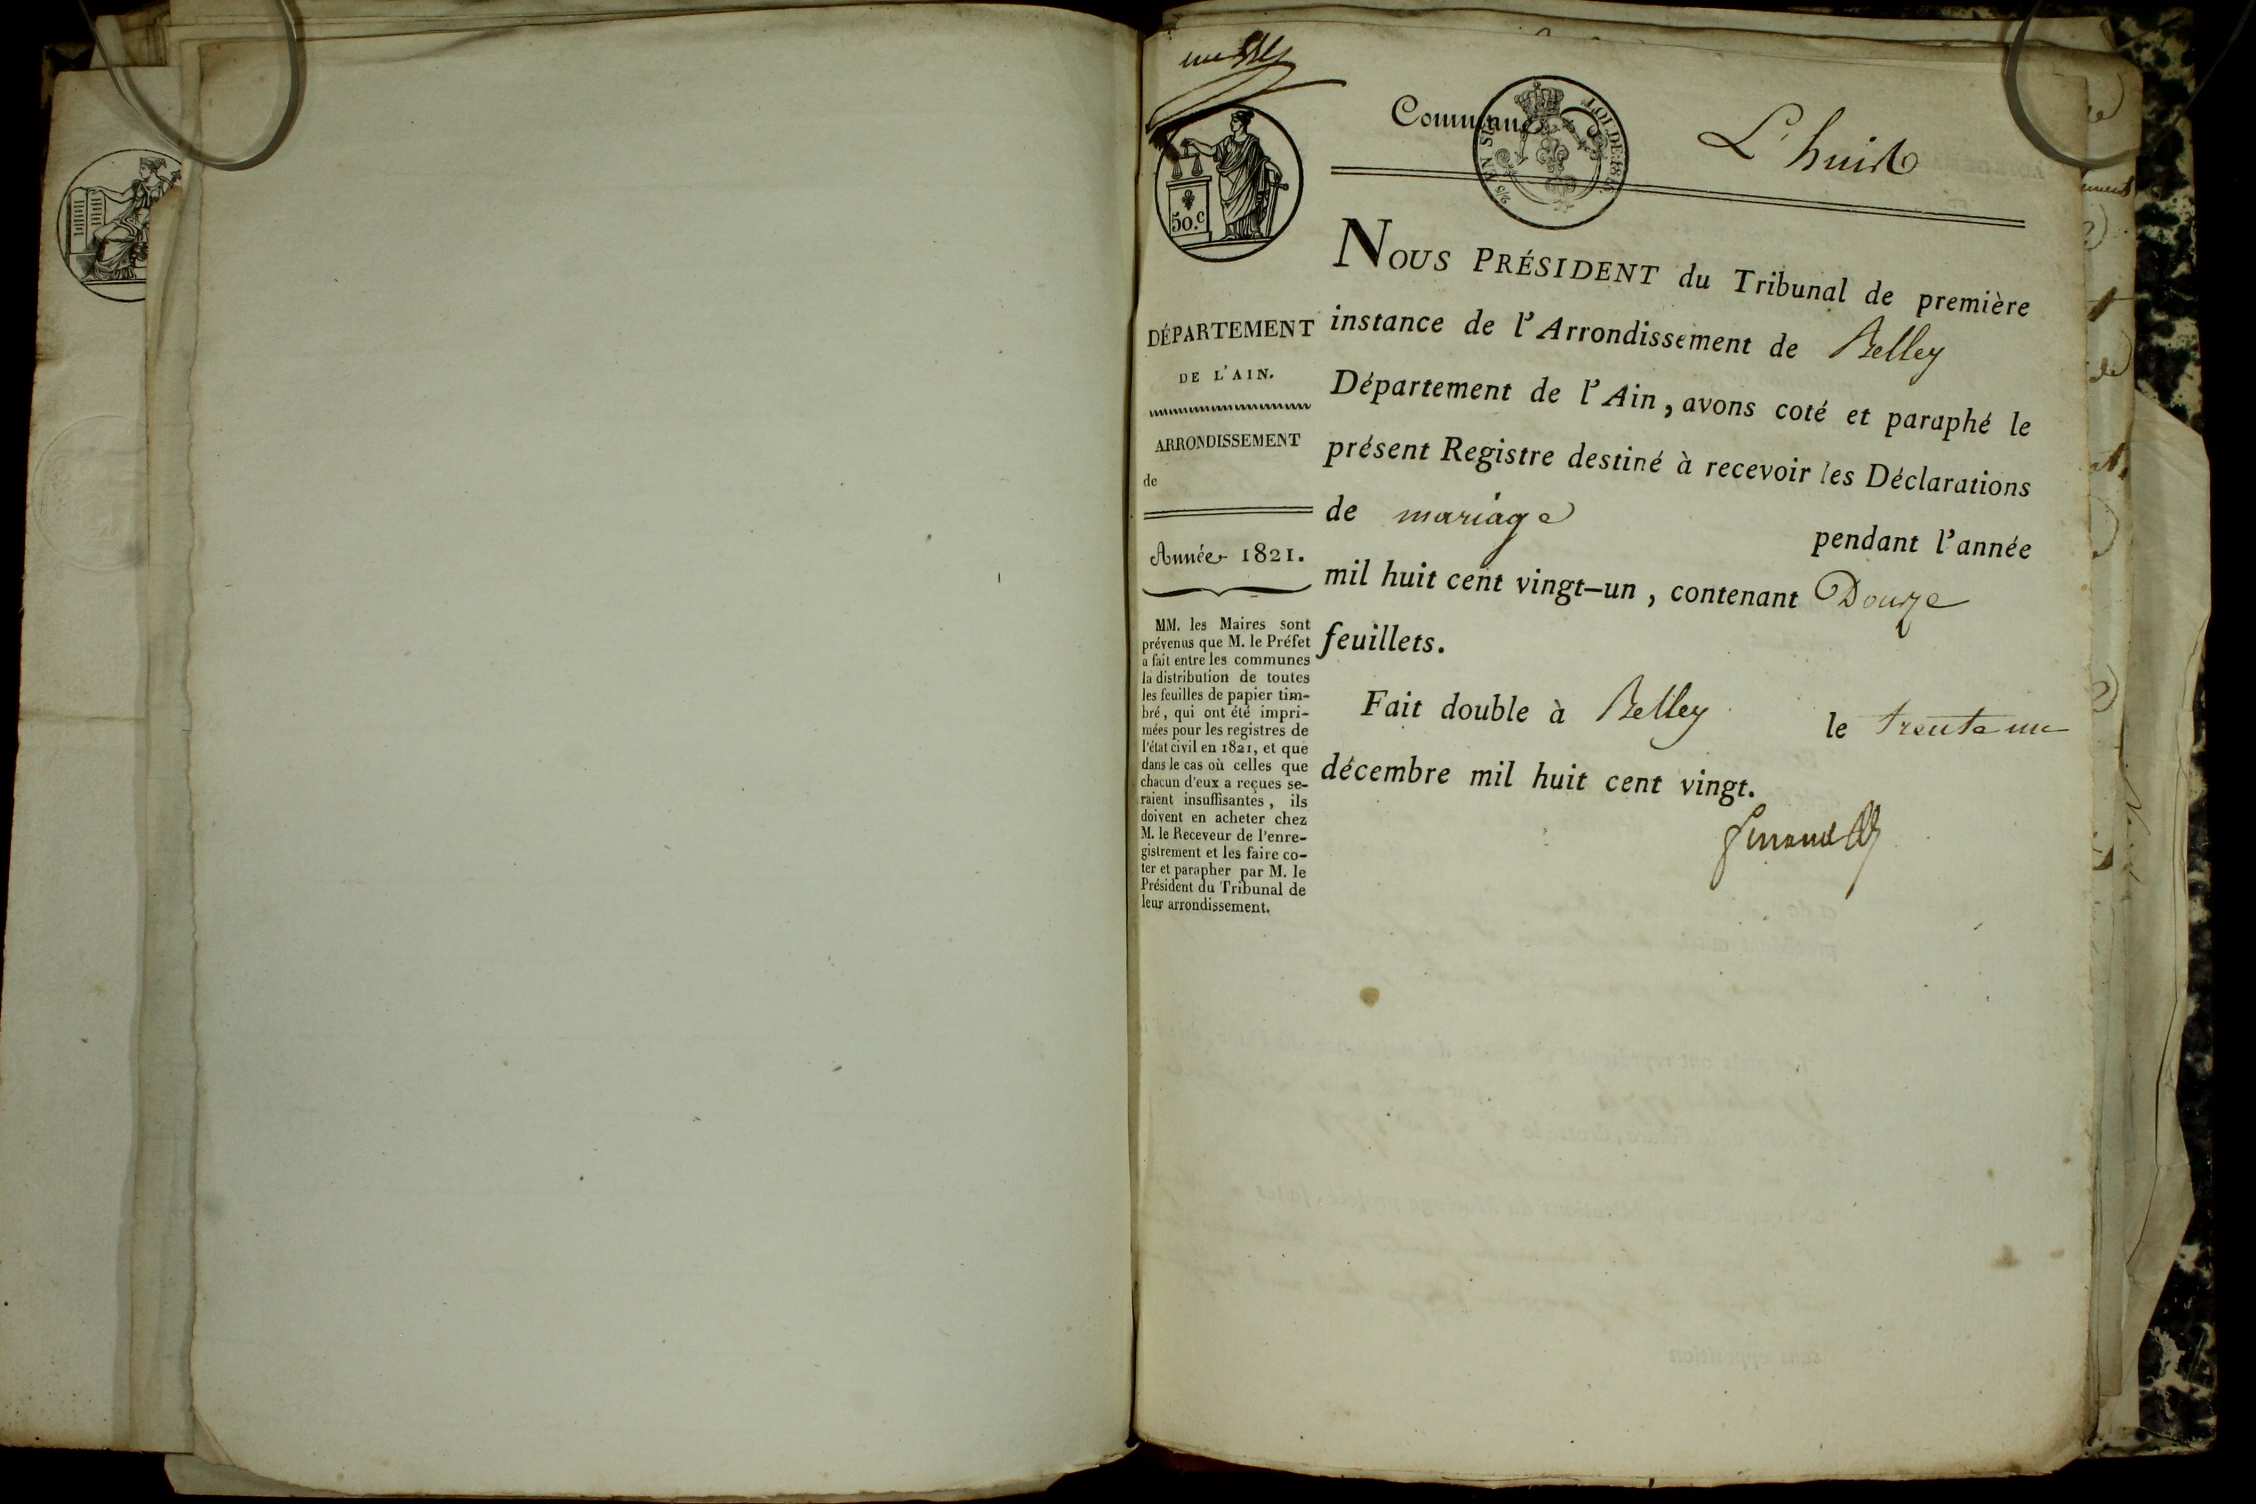 Commune
L'huis
50.c
LOI DE 1816
NOUS PRÉSIDENT du Tribunal de première
instance de l'Arrondissement de Belley
Département de l'Ain, avons coté et paraphé le
présent Registre destiné à recevoir les Déclarations
de mariage pendant l'année
mil huit cent vingt-un, contenant Douze
feuillets.
Fait double à Belley le trente un
décembre mil huit cent vingt.
DÉPARTEMENT
DE L'AIN.
ARRONDISSEMENT
de
Année 1821.
MM. les Maires sont
prévenus que M. le Préfet
a fait entre les communes
la distribution de toutes
les feuilles de papier tim-
bré, qui ont été impri-
mées pour les registres de
l'état civil en 1821, et que
dans le cas où celles que
chacun d'eux a reçues se-
raient insuffisantes, ils
doivent en acheter chez
M. le Receveur de l'enre-
gistrement et les faire co-
ter et parapher par M. le
Président du Tribunal de
leur arrondissement.